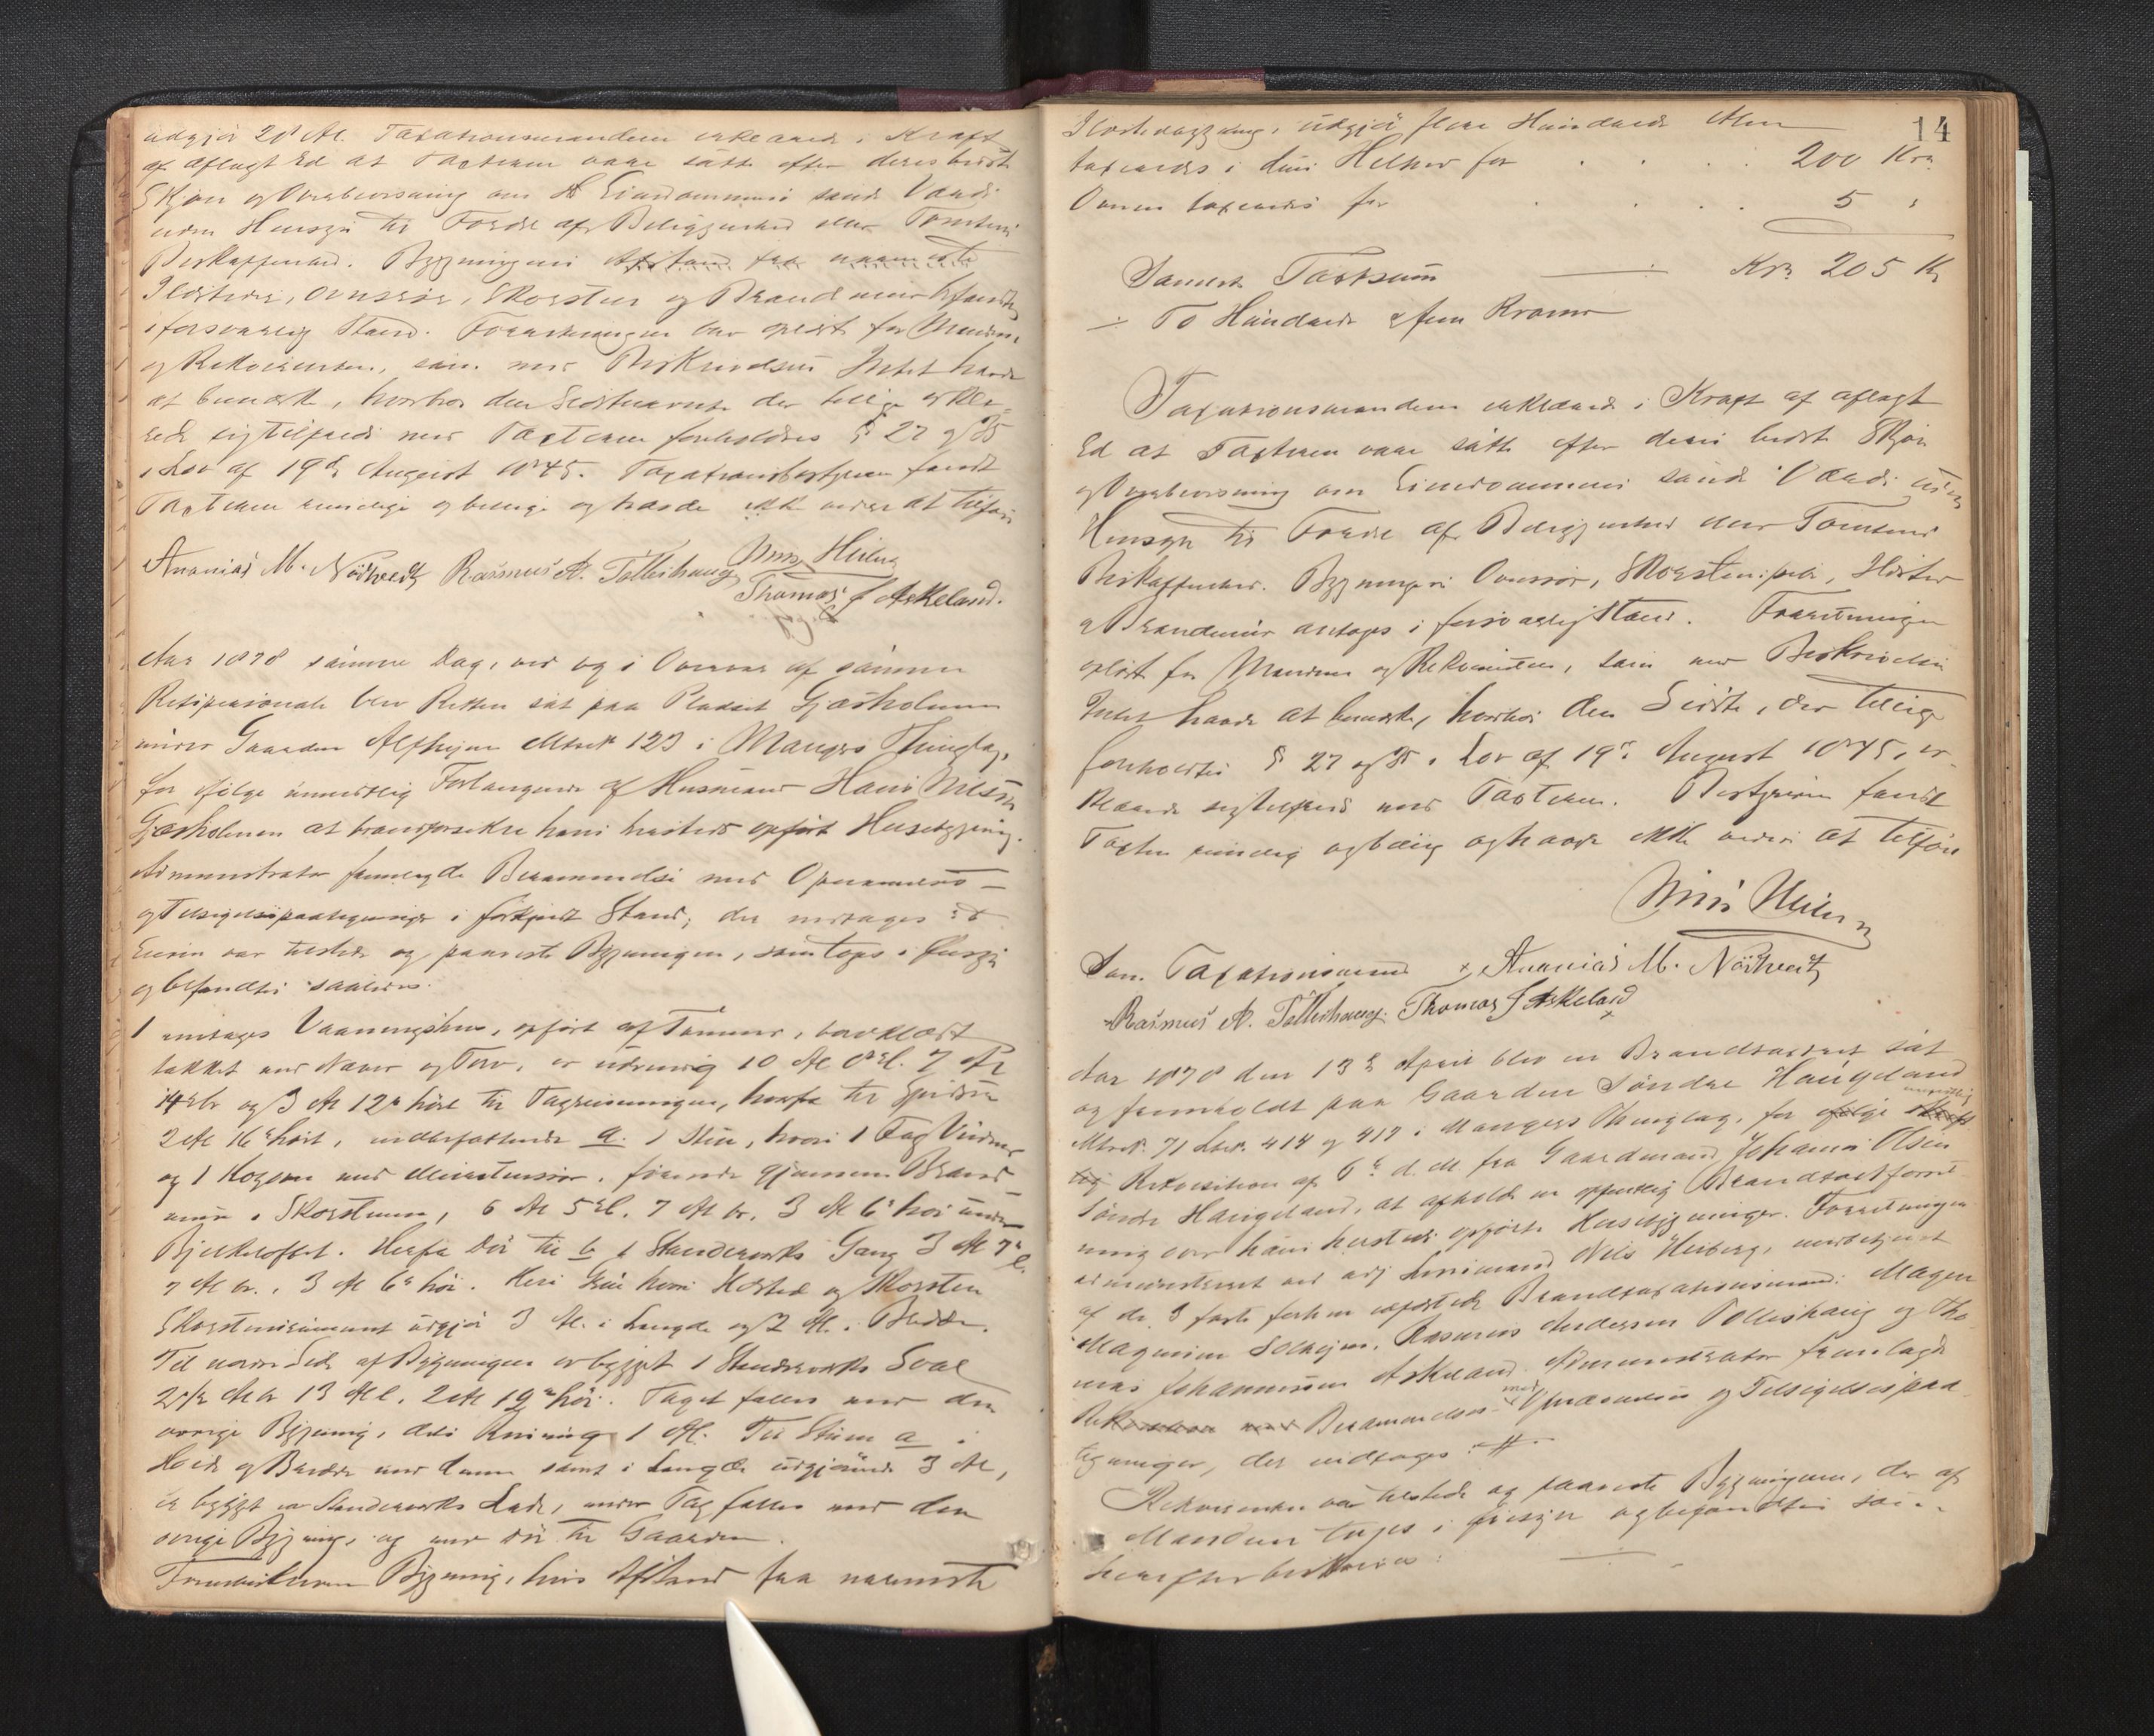 udgjør 20 Al. Taxationsmændene erklærede i Kraft
af aflagt Ed at Taxterne vare satte efter deres bedste
Skjøn og Overbevisning om Eiendommens sande Værdi
uden Hensyn til Fordel af Beliggenhed eller Tomtens
Beskaffenhed. Bygningens Afstand fra nærmeste
Ildsteder, Ovnsrør, Skorsten og Brandmur befandtes
i forsvarlig Stand. Forretningen blev oplæst for Mændene
og Rekvirenten, som mod Beskrivelsen Intet havde
at bemærke, hvorhos den Sidstnævnte der tillige erklæ-
rede sig tilfreds med Taxterne foreholdtes § 27 og 35
i Lov af 19de August 1845. Taxationsbestyreren fandt
Taxterne rimelige og billige og havde ikke videre at tilføie
Nils Heiberg
Ananias M. Nødtvedt Rasmus A. Tolleshaug
Thomas J Askeland.
Aar 1878 samme Dag, ved og i Overvær af samme
Retspersonale blev Retten sat paa Pladset Gjæsholmen
under Gaarden Alfheim Matr. 123 i Mangers Thinglag,
for ifølge mundtlig Forlangende af Husmand Hans Nilsen
Gjæsholmen at brandforsikre hans hersteds opført Husebygning.
Administrator fremlagde Berammelse med Opnævnelses-
og Tilsigelsespaategninger i forkyndt Stand; der indtages
Eieren var tilstede og paaviste Bygningen, som toges i Øiesyn
og befandtes saaledes:
1 etages Vaaningshus, opført af Tømmer, bordklædt
takket med Næver og Torv, er udvendig 10 Al 8" l. 7 Al
14" br og 3 Al 12" høit til Tagrenningen, herfra til Spidsen
2 Al 16" høit, indbefattende a. 1 Stue, hvori 1 Fag Vinduer
og 1 Kogeovn med Ovnsrør, førende gjennem Brand-
mur i Skorstenen, 6 Al 5" l. 7 Al br. 3 Al 6" høi under
Bjelkeloftet. Herfra Dør til b 1 Standerværks Gang 3 Al 7" l.
7 Al br., 3 Al 6" høi. Heri Grue hvori Ildsted og Skorsten
Skorstensrummet udgjør 3 Al. i Længde og 2 Al. i Bredde.
Til nordre Side af Bygningen er bygget 1 Standerværks Sval
2 1/2 Al br 13 Al l. 2 Al 12" høi. Taget falder med den
øvrige Bygning, dets Reisning 1 Al. Til Stuen a i
Høide og Bredde med denne samt i Længde udgjørende 3 Al,
er bygget en Standerværks Lade, under Tag falder med den
øvrige Bygning, og med Dør til Gaarden.
Foranskrevne Bygning, hvis Afstand fra nærmeste
14
Ildstedsbygning, udgjør flere Hundrede Alen
taxeredes i dens Helhed for . . . . 200 Kr.
Ovnen taxeredes for . . . . 5 "
Samlet Taxtsum Kr. 205 Kr
÷ To Hundrede & fem Kroner
Taxationsmændene erklærede i Kraft af aflagt
Ed at Taxterne vare satte efter deres bedste Skjøn
og Overbevisning om Eiendommens sande Værdi uden
Hensyn til Fordel af Beliggenhed eller Tomtens
Beskaffenhed. Bygningens Ovnsrør, Skorstenspibe, Ildsted
& Brandmur antoges i forsvarlig Stand. Forretningen
oplæst for Mændene og Rekvirenten, som mod Beskrivelsen
Intet havde at bemærke, hvorhos den Sidste, der tillige
foreholdtes § 27 og 35 i Lov af 19de August 1845, er-
klærede sig tilfreds med Taxterne. Bestyreren fandt
Taxten rimelig og billig og havde ikke videre at tilføie
Nils Heiberg
Som Taxationsmænd Ananias M. Nødtvedt
Rasmus A. Tolleshaug. Thomas J Askeland
Aar 1878 den 13de April blev en Brandtaxtret sat
og fremholdt paa Gaarden Søndre Haugeland
Matr. 71 Løb. 414 og 417 i Mangers Thinglag, for ifølge mundtlig
Rekvisition af 6te d. M. fra Gaardmand Johannes Olsen
Søndre Haugeland, at afholde en offentlig Brandtaxtforret-
ning over hans hersteds opførte Husebygninger. Forretningen
administreret ved edsv. Lensmand Nils Heiberg, medbetjent
af de 3 faste forhen edfæstede Brandtaxationsmænd: Magne
Magnesen Solheim, Rasmus Andersen Tolleshaug og Tho-
mas Johannessen Askeland. Administrator fremlagde
Berammelse med Opnævnelses og Tilsigelsespaa-
tegninger, der indtages #
Rekvirenten var tilstede og paaviste Bygningerne, der af
Mændene toges i Øiesyn og befandtes som
herefter beskrives: